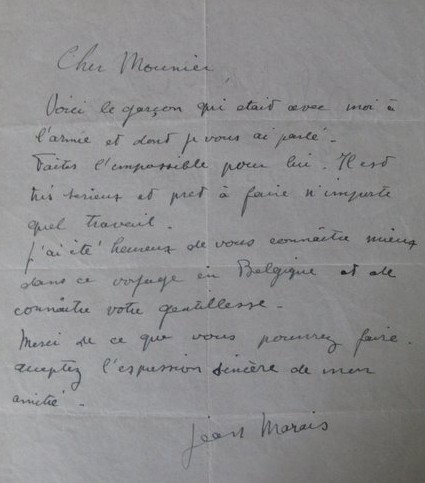 Cher Mounier,
Voici le garçon qui etait avec moi à
l'armée et dont je vous ai parlé.
Faites l'impossible pour lui. Il est
très serieux et pret à faire n'importe
quel travail.
J'ai été heureux de vous connaître mieux
dans ce voyage en Belgique et de
connaître votre gentillesse.
Merci de ce que vous pourrez faire.
acceptez l'expression sincère de mon
amitié.
Jean Marais